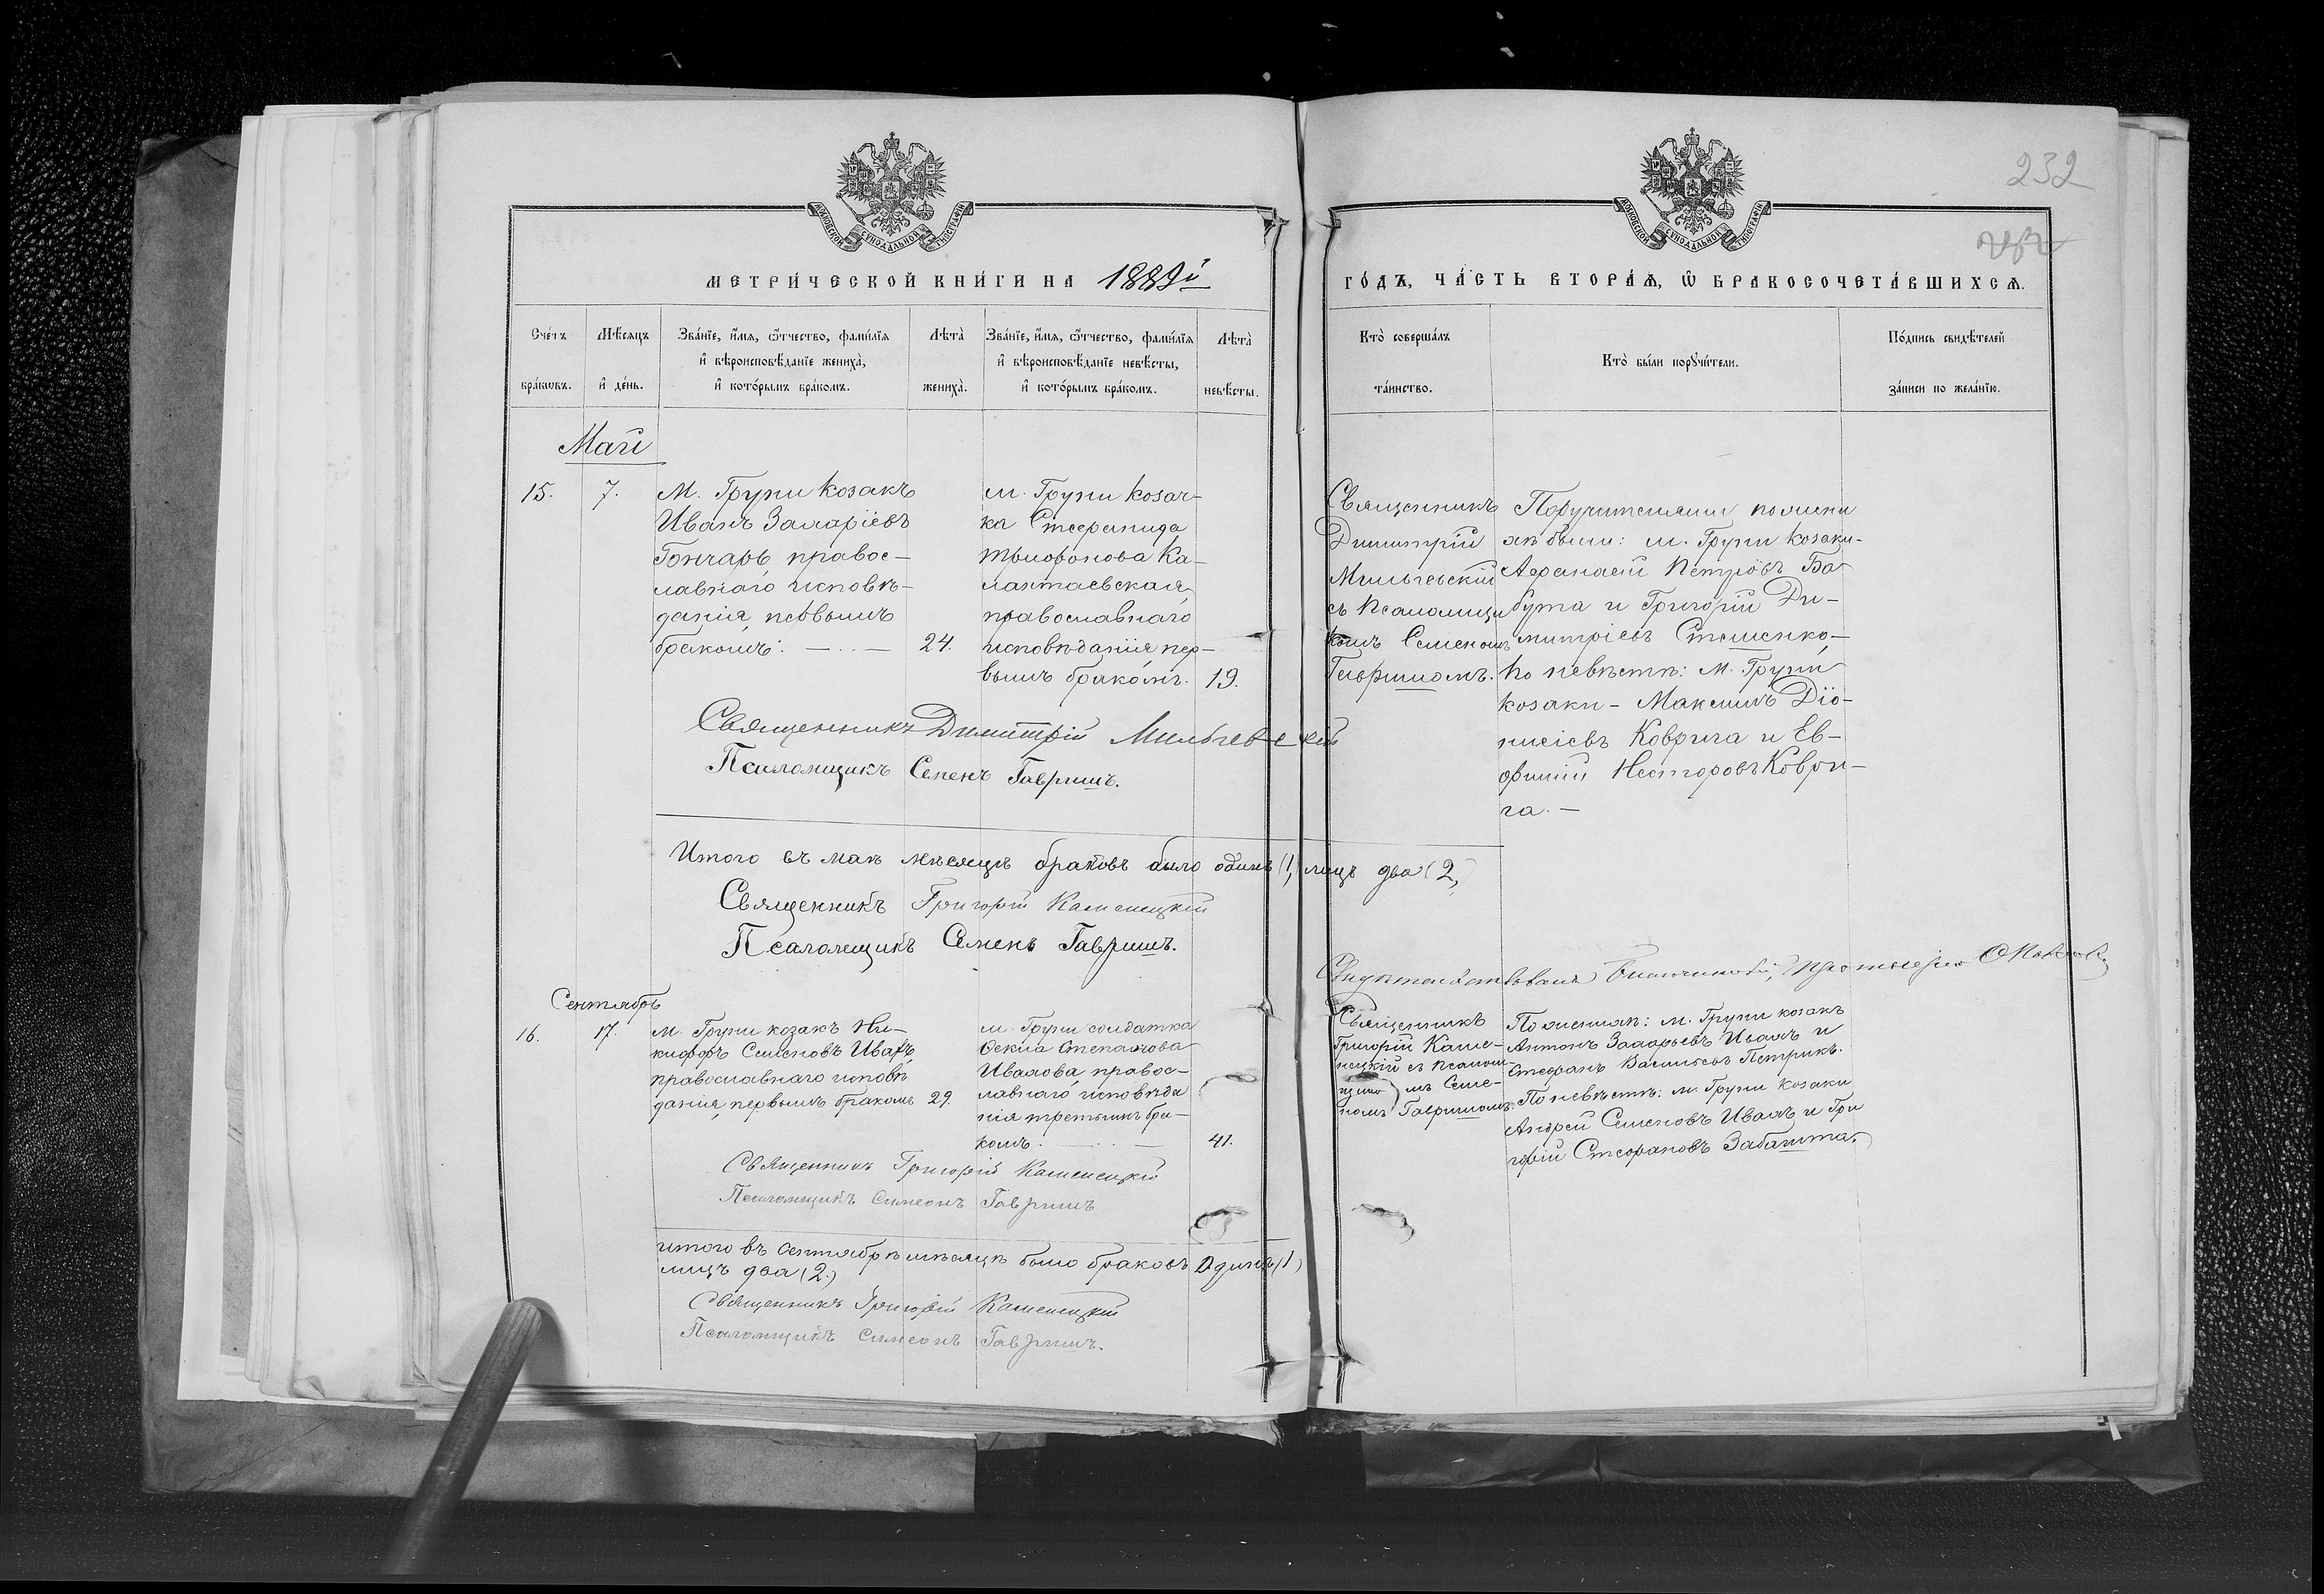 232
МОСКОВСКОЙ СѴНОДАЛЬНОЙ ТИПОГРАФІИ
МОСКОВСКОЙ СѴНОДАЛЬНОЙ ТИПОГРАФІИ
МЕТРИ́ЧЕСКОЙ КНИ́ГИ НА 1889й
ГО́ДЪ, ЧА́СТЬ ВТОРА́Ѧ, Ѽ БРАКОСОЧЕТА́ВШИХСѦ.
Сче́тъ бра́кѡвъ.
Мѣ́сяцъ и҆ де́нь.
Зва́нїе, и҆́мѧ, ѻ҆́тчество, фами́лїѧ
и҆ вѣроисповѣ́данїе жениха̀,
и҆ кото́рымъ бра́комъ.
Лѣта̀ жениха̀.
Зва́нїе, и҆́мѧ, ѻ҆́тчество, фами́лїѧ
и҆ вѣроисповѣ́данїе невѣ́сты,
и҆ кото́рымъ бра́комъ.
Лѣта̀ невѣ́сты.
Кто̀ соверша́лъ
та́инство.
Кто̀ бы́ли порꙋчи́тели.
По́дпись свидѣ́телей
за́писи по жела́нїю.
Май
15.
7.
М. Груни козакъ
Иванъ Захаріевъ
Гончаръ, правос-
лавнаго исповѣ-
данія, первымъ
бракомъ:
24.
м. Груни козач-
ка Стефанида
Трифонова Ка-
лантаевская,
православнаго
исповѣданія пер-
вымъ бракомъ.
19.
Священникъ
Димитрій
Мильчевскій
съ псаломщи
комъ Семеномъ
Гавришомъ.
Поручителями по жени
хѣ были: м. Груни козаки-
Афанасій Петровъ Ба-
бута и Григорій Ди-
митріевъ Стешенко,-
по невѣстѣ: м. Груни
козаки - Максимъ Діо-
нисіевъ Коврига и Ев-
фимій Несторовъ Коври-
га. -
Священникъ Димитрій Мильчевскій
Псаломщикъ Семенъ Гавришъ.
Итого въ маѣ мѣсяцѣ браковъ было одинъ (1,) лицъ два (2,)
Священникъ Григорій Каменецкій
Псаломщикъ Семенъ Гавришъ.
Свидѣтельствовалъ
Сентябрь
16.
17.
м. Груни козакъ Ни-
кифоръ Семеновъ Иванъ,
православнаго исповѣ
данія, первымъ бракомъ
29.
м. Груни солдатка
Ѳекла Степанова
Иванова правос-
лавнаго исповѣда
нія третьимъ бра-
комъ.
41.
Священникъ
Григорій Каме-
нецкій съ псалом
щико мъ Семе-
номъ Гавришомъ.
По женихѣ: м. Груни козакъ
Антонъ Захарьевъ Иванъ и
Стефанъ Васильевъ Петрикъ.
По невѣстѣ: м. Груни козаки
Андрей Семеновъ Иванъ и Гри
горій Стефановъ Забашта.
Священникъ Григорій Каменецкій
Псаломщикъ Симеонъ Гавришъ
итого въ сентябрѣ мѣсяцѣ было браковъ Одинъ (1)
лицъ два (2.)
Священникъ Григорій Каменецкій
Псаломщикъ Симеонъ Гавришъ.